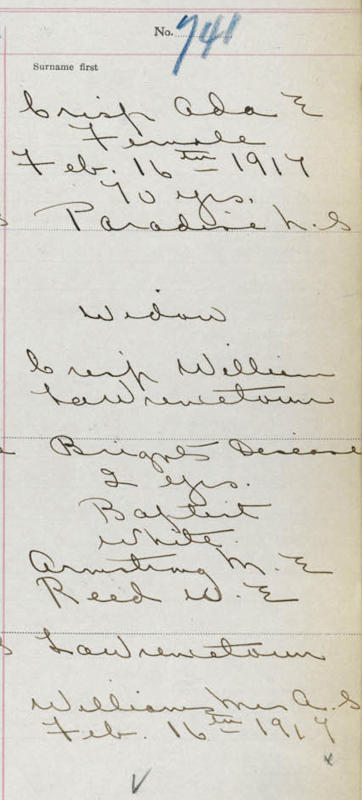 No. 741
Surname first
Crisp Ada E
Female
Feb. 16th 1917
70 yrs.
Paradise N. S
Widow
Crisp William
Lawrencetown
Brights Disease
2 yrs.
Baptist
White
Armstrong M. E
Reed W. E
Lawrencetown
Williams Mrs A. S
Feb. 16th 1917